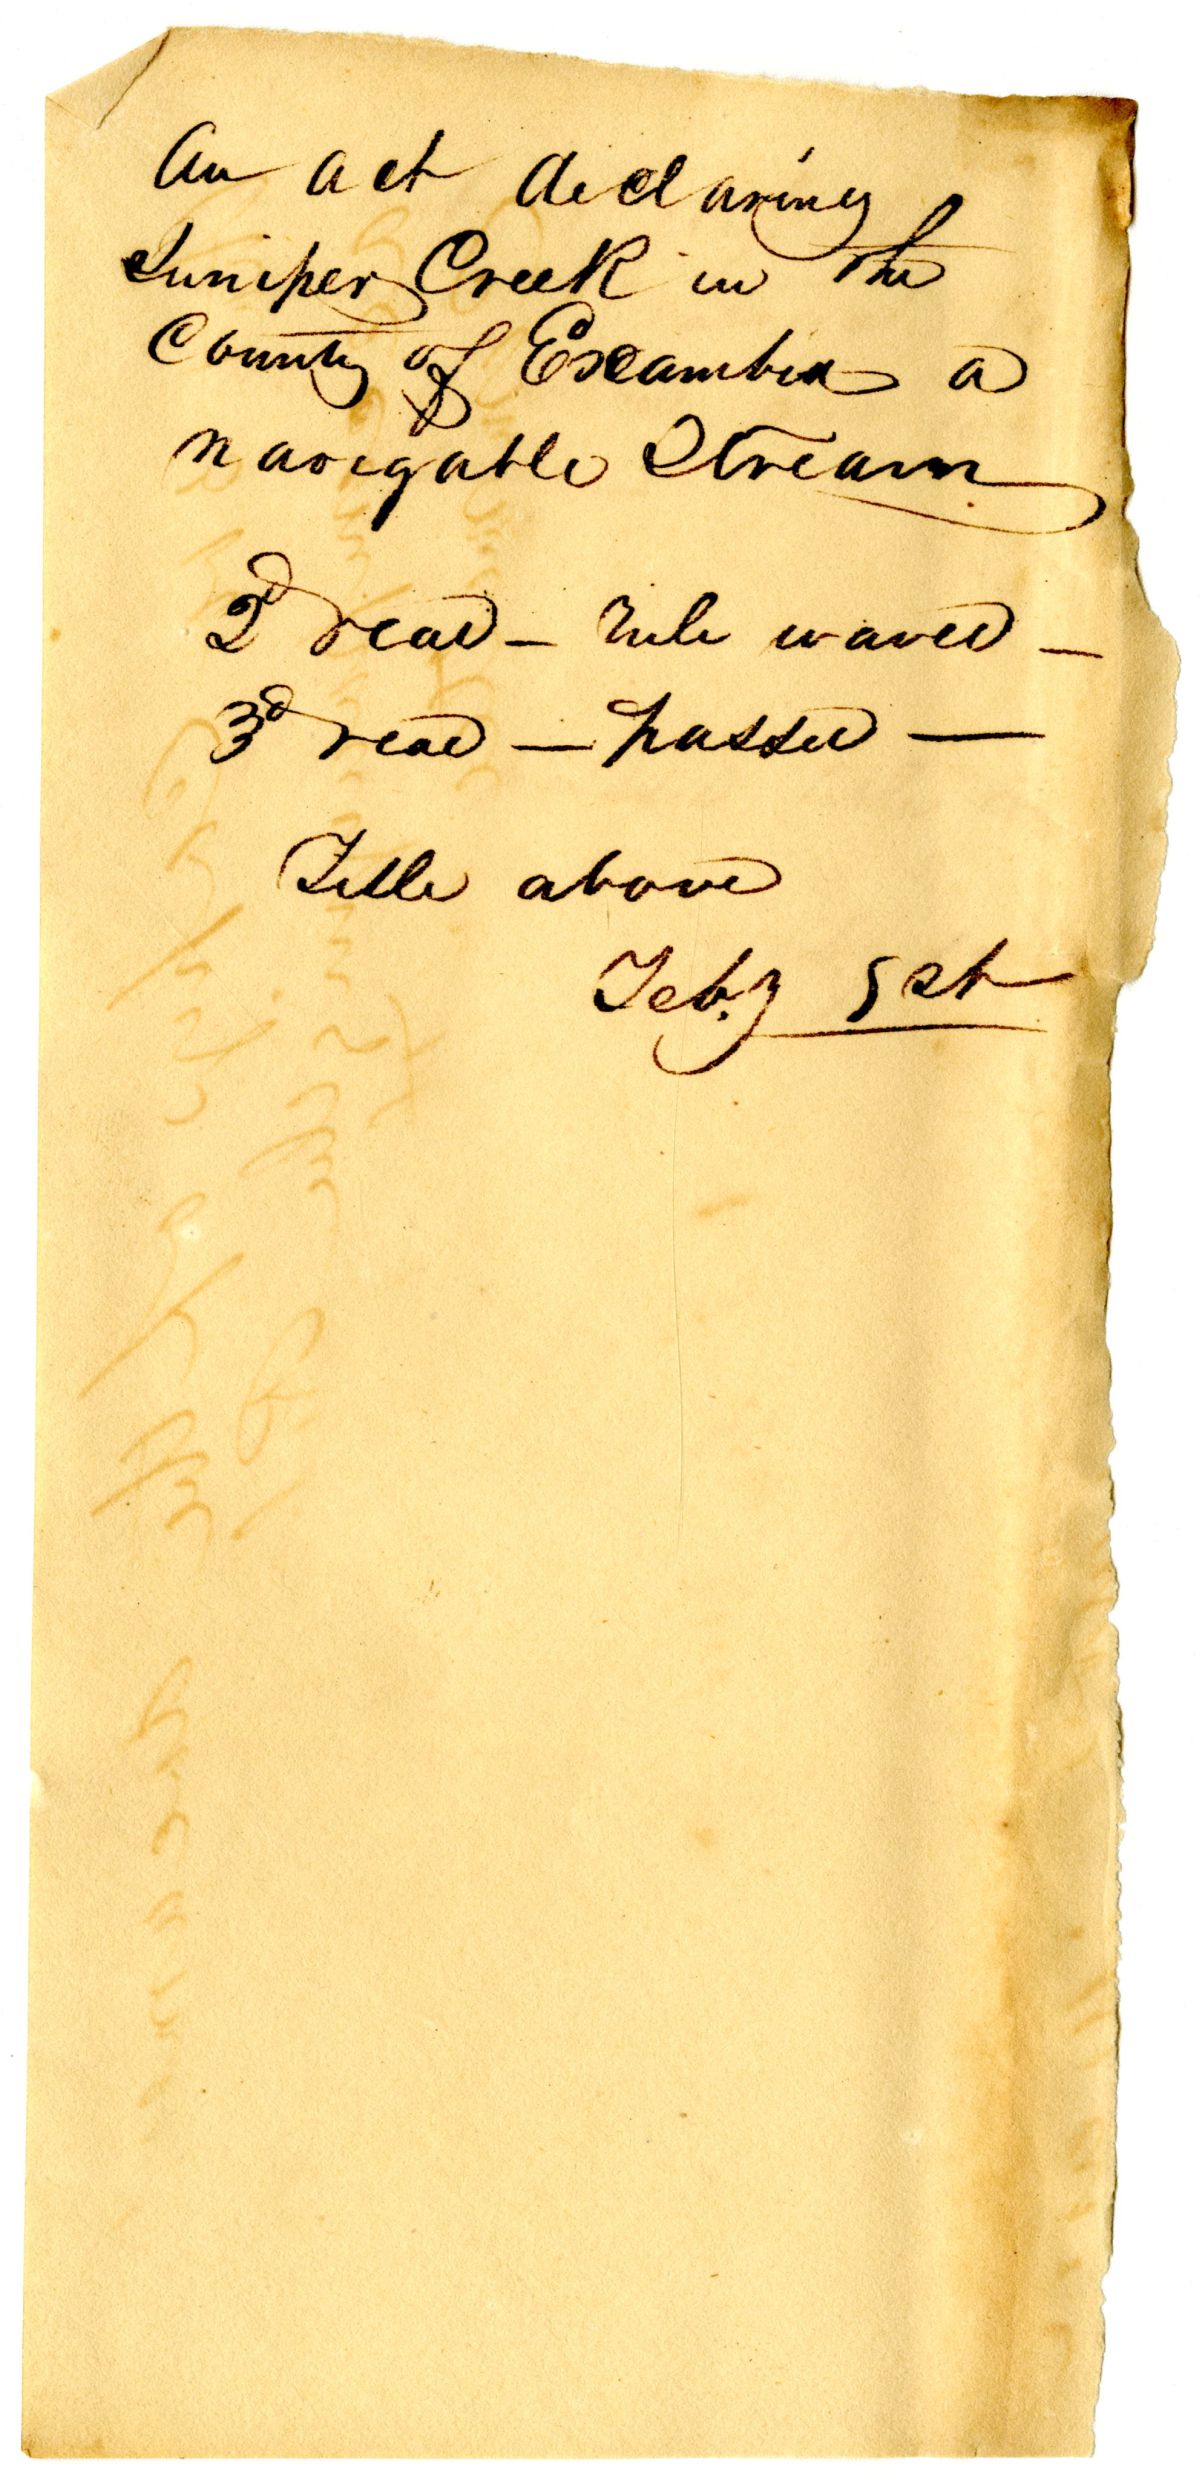 An act declaring
Juniper Creek in the
County of Escambia a
navigable Stream
2d read – rule waved –
3d read – passed –
Title above
Feby